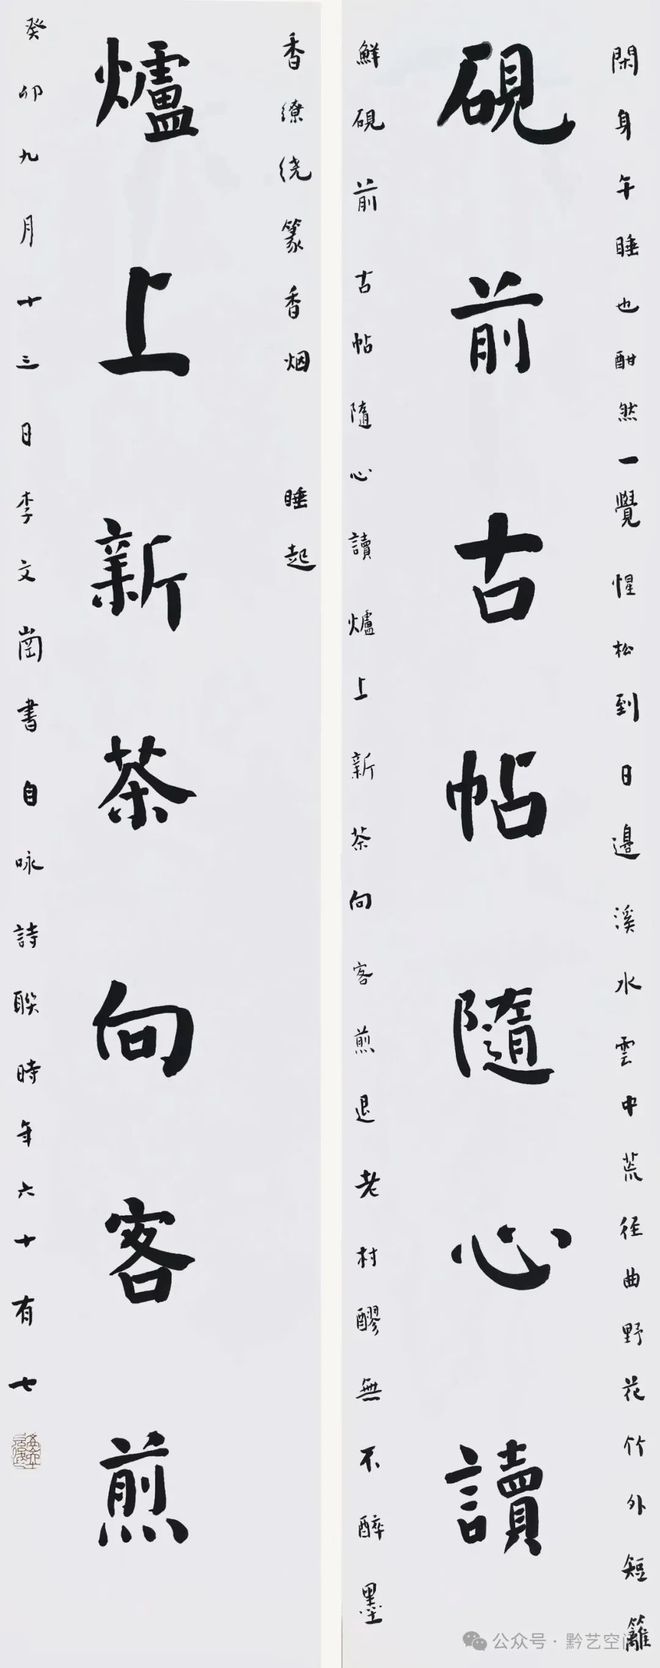 閑身午睡也酣然一覺惺松到日邊溪水雲中荒徑曲野花竹外短籬
硯前古帖隨心讀
鮮硯前古帖隨心讀爐上新茶向客煎退老村醪無不醉墨
香繚绕篆香烟 睡起
爐上新茶向客煎
癸卯九月十三日李文崗書自咏詩聯時年六十有七
公众号 · 黔艺空